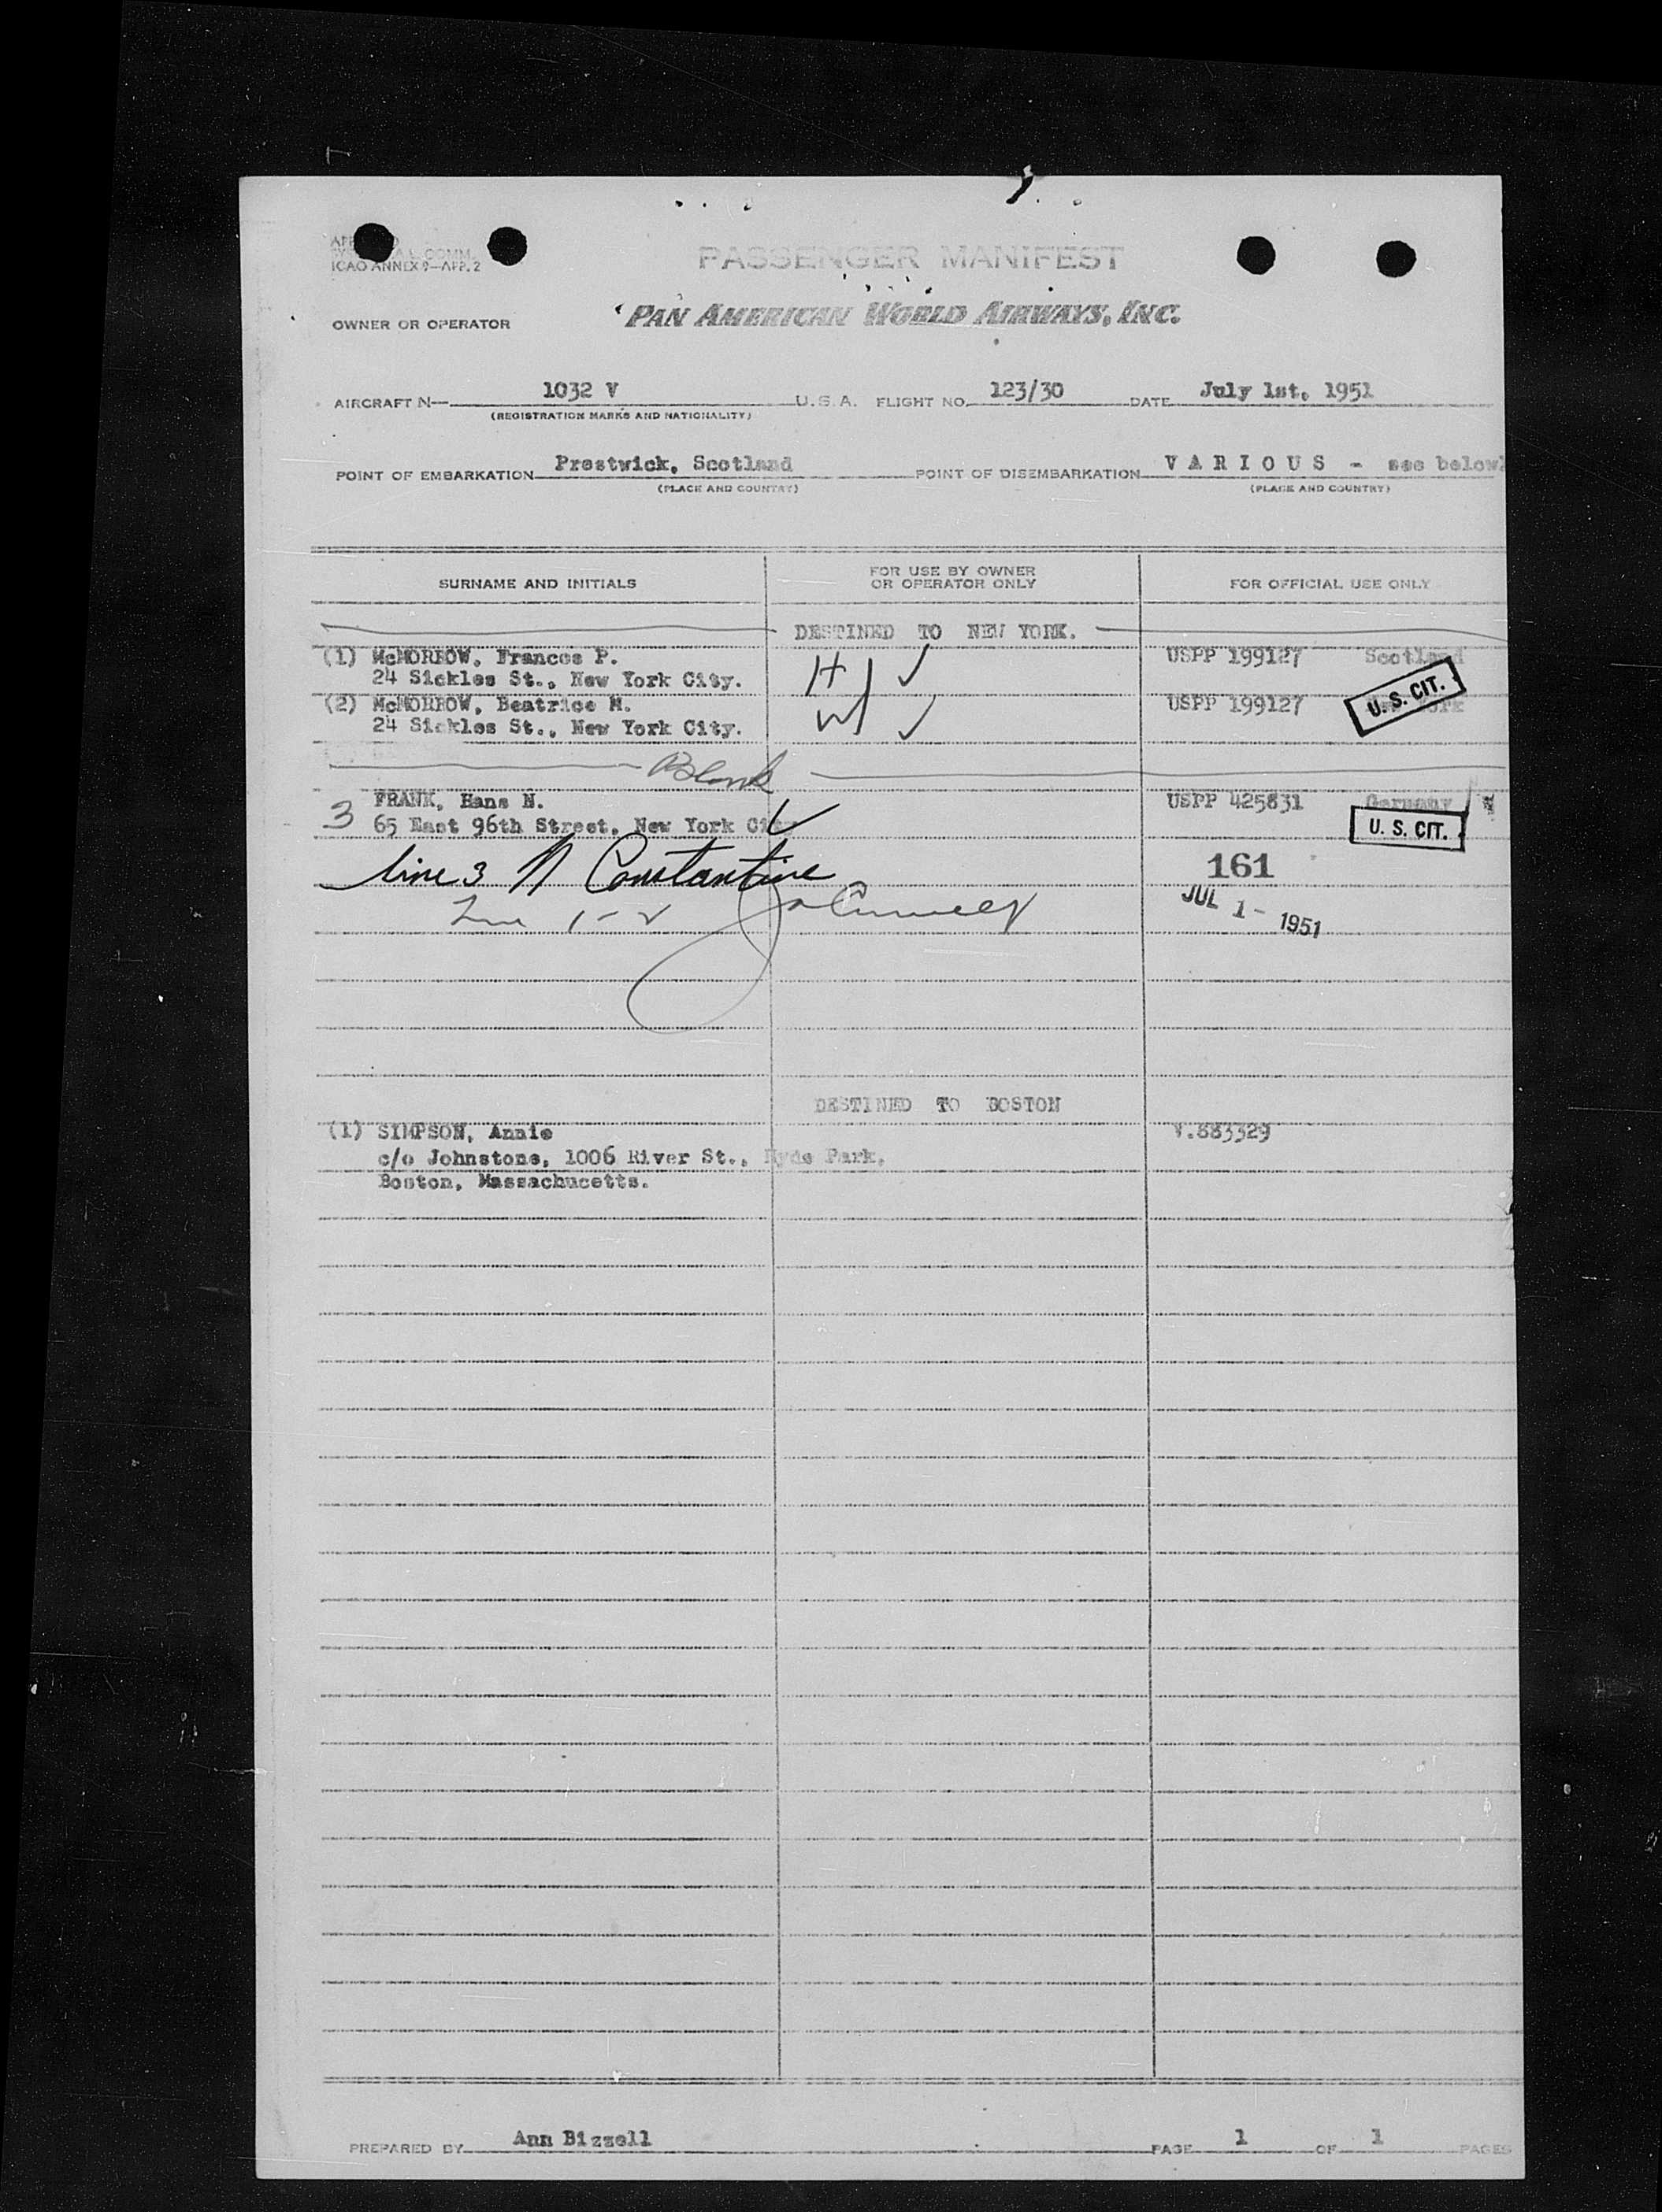 PASSENGER MANIFEST
ICAO ANNEX 9—APP. 2
OWNER OR OPERATOR PAN AMERICAN WORLD AIRWAYS, INC.
AIRCRAFT N— 1032 V U.S.A. FLIGHT NO. 123/30 DATE July 1st, 1951
(REGISTRATION MARKS AND NATIONALITY)
POINT OF EMBARKATION Prestwick, Scotland POINT OF DISEMBARKATION V A R I O U S - see below.
(PLACE AND COUNTRY) (PLACE AND COUNTRY)
SURNAME AND INITIALS FOR USE BY OWNER OR OPERATOR ONLY FOR OFFICIAL USE ONLY
DESTINED TO NEW YORK.
(1) McMORROW, Frances P. H USPP 199127 Scotland
24 Sickles St., New York City.
(2) McMORROW, Beatrice M. W USPP 199127 U. S. CIT.
24 Sickles St., New York City.
Blank
3 FRANK, Hans N. USPP 425831 Germany
65 East 96th Street, New York City U. S. CIT.
line 3 N Constantine 161
JUL 1- 1951
DESTINED TO BOSTON
(1) SIMPSON, Annie V.883329
c/o Johnstone, 1006 River St., Hyde Park,
Boston, Massachucetts.
PREPARED BY Ann Bizzell PAGE 1 OF 1 PAGES